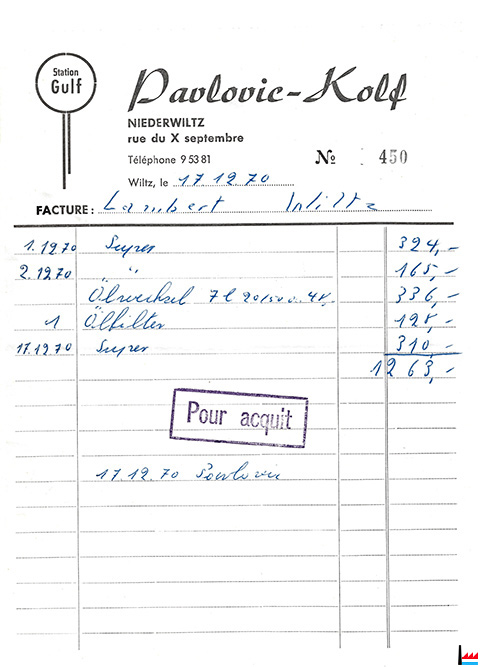 Station
Gulf
Pavlovic-Kolf
NIEDERWILTZ
rue du X septembre
Téléphone 9 53 81
Nº 450
Wiltz, le 17.12.70
FACTURE: Lambert Wiltz
1.12.70 Super 324,-
2.12.70 " " 165,-
Ölwechsel 7 l 20/50 à 48,- 336,-
1 Ölfilter 128,-
17.12.70 Super 310,-
1263,-
Pour acquit
17.12.70